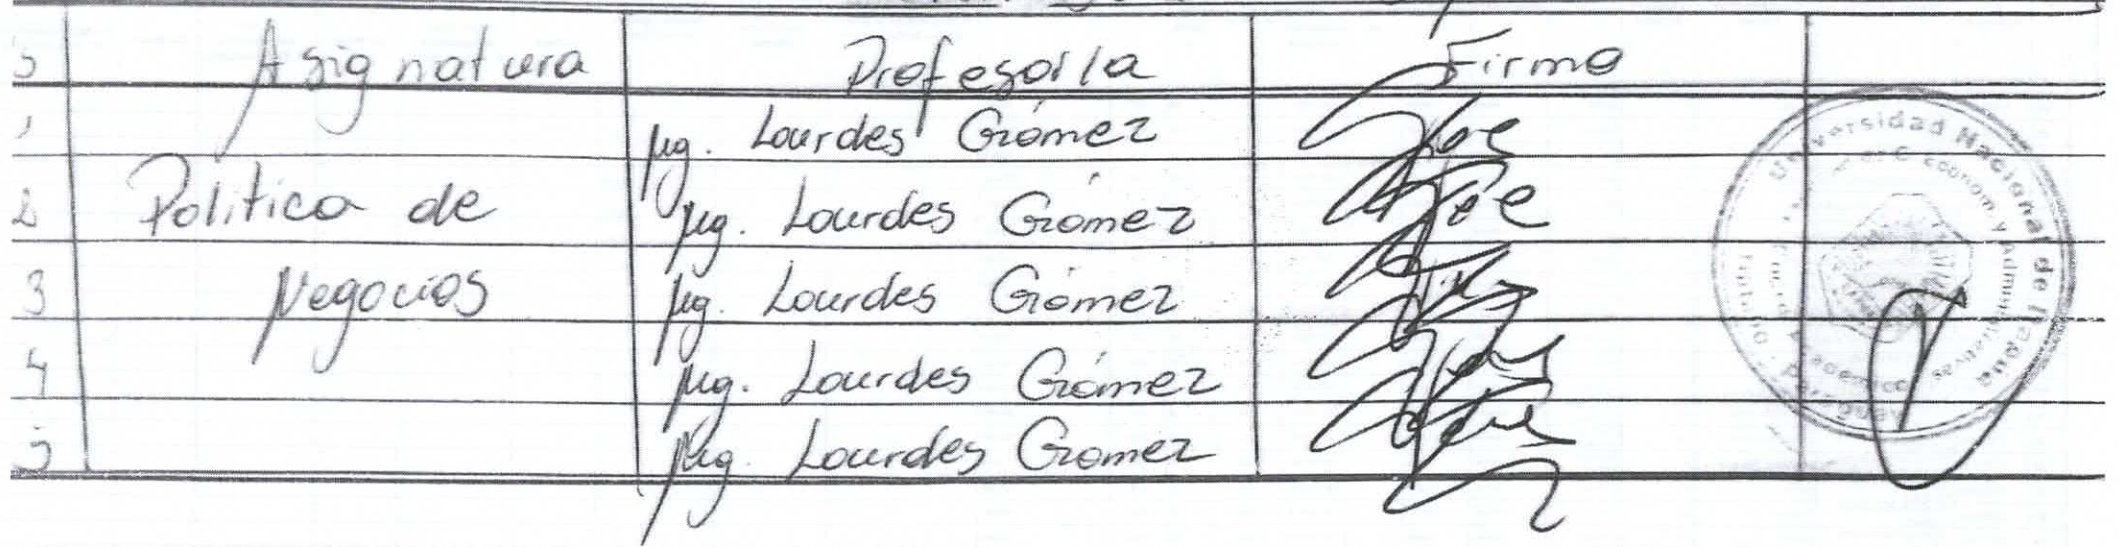 Asignatura Profesor/a Firma
1 Mg. Lourdes Gómez
2 Politica de Mg. Lourdes Gómez
3 Negocios Mg. Lourdes Gómez
4 Mg. Lourdes Gómez
5 Mg. Lourdes Gomez
Universidad Nacional de Itapua
Paraguay